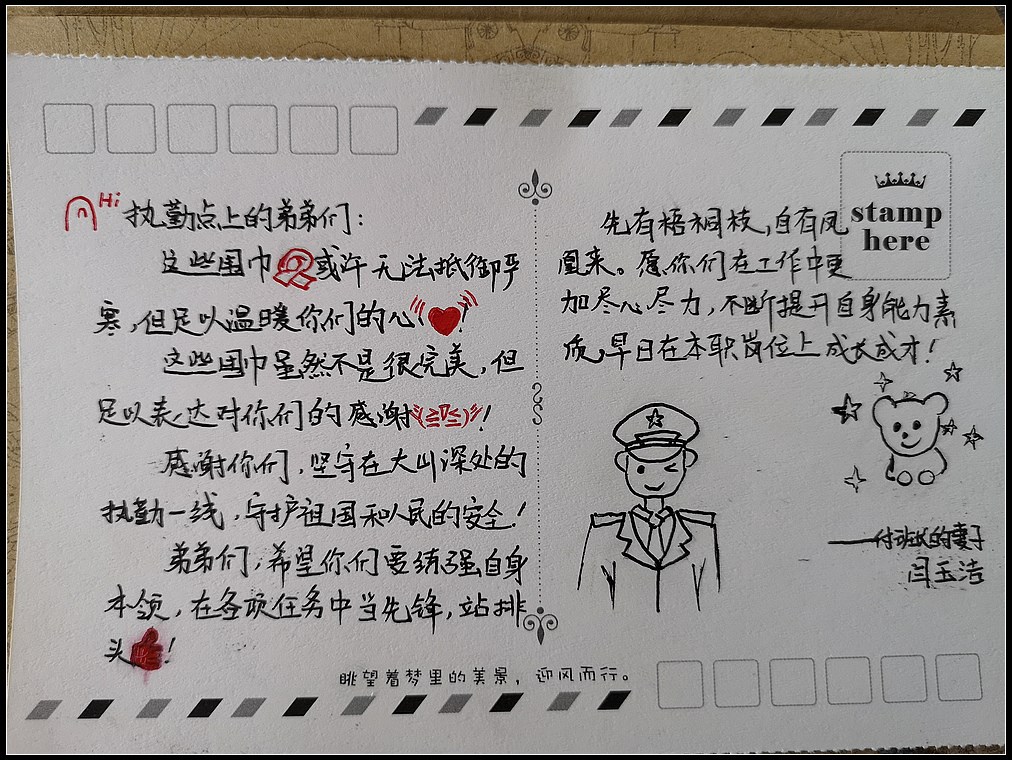 Hi 执勤点上的弟弟们:
这些围巾或许无法抵御严
寒,但足以温暖你们的心!
这些围巾虽然不是很完美,但
足以表达对你们的感谢(≧∇≦)!
感谢你们,坚守在大山深处的
执勤一线,守护祖国和人民的安全!
弟弟们,希望你们要练强自身
本领,在各项任务中当先锋,站排
头!
先有梧桐枝,自有凤
凰来。愿你们在工作中更
加尽心尽力,不断提升自身能力素
质,早日在本职岗位上成长成才!
stamp
here
——付班长的妻子
闫玉洁
眺望着梦里的美景,迎风而行。